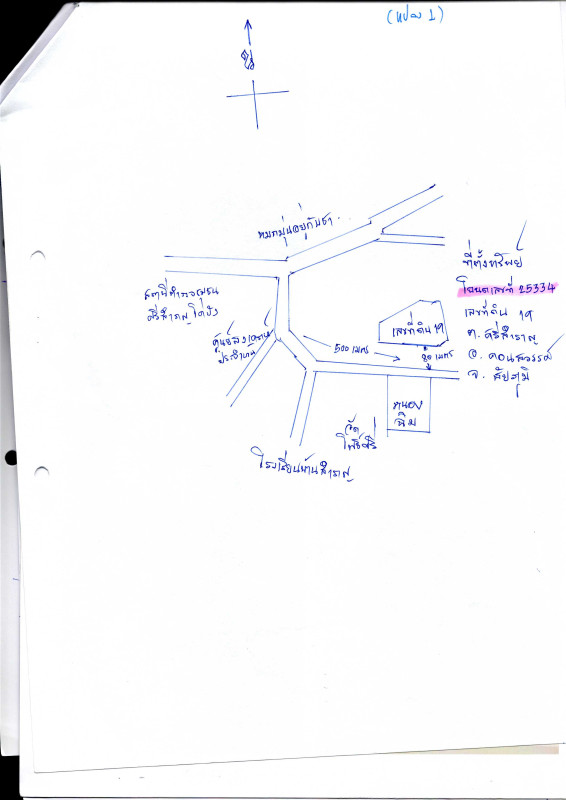 (แปลง 1)
น
หมกมุ่นอยู่กับชา
ที่ตั้งทรัพย์
โฉนดเลขที่ 25334
เลขที่ดิน 19
ต. ศรีสำราญ
อ. คอนสวรรค์
จ. ชัยภูมิ
สถานีตำรวจชุมชน
ศรีสำราญ
เลขที่ดิน 19
500 เมตร
20 เมตร
ประจำตำบล
หนอง
วัด
โพธิ์ศรี
โรงเรียนบ้านสำราญ